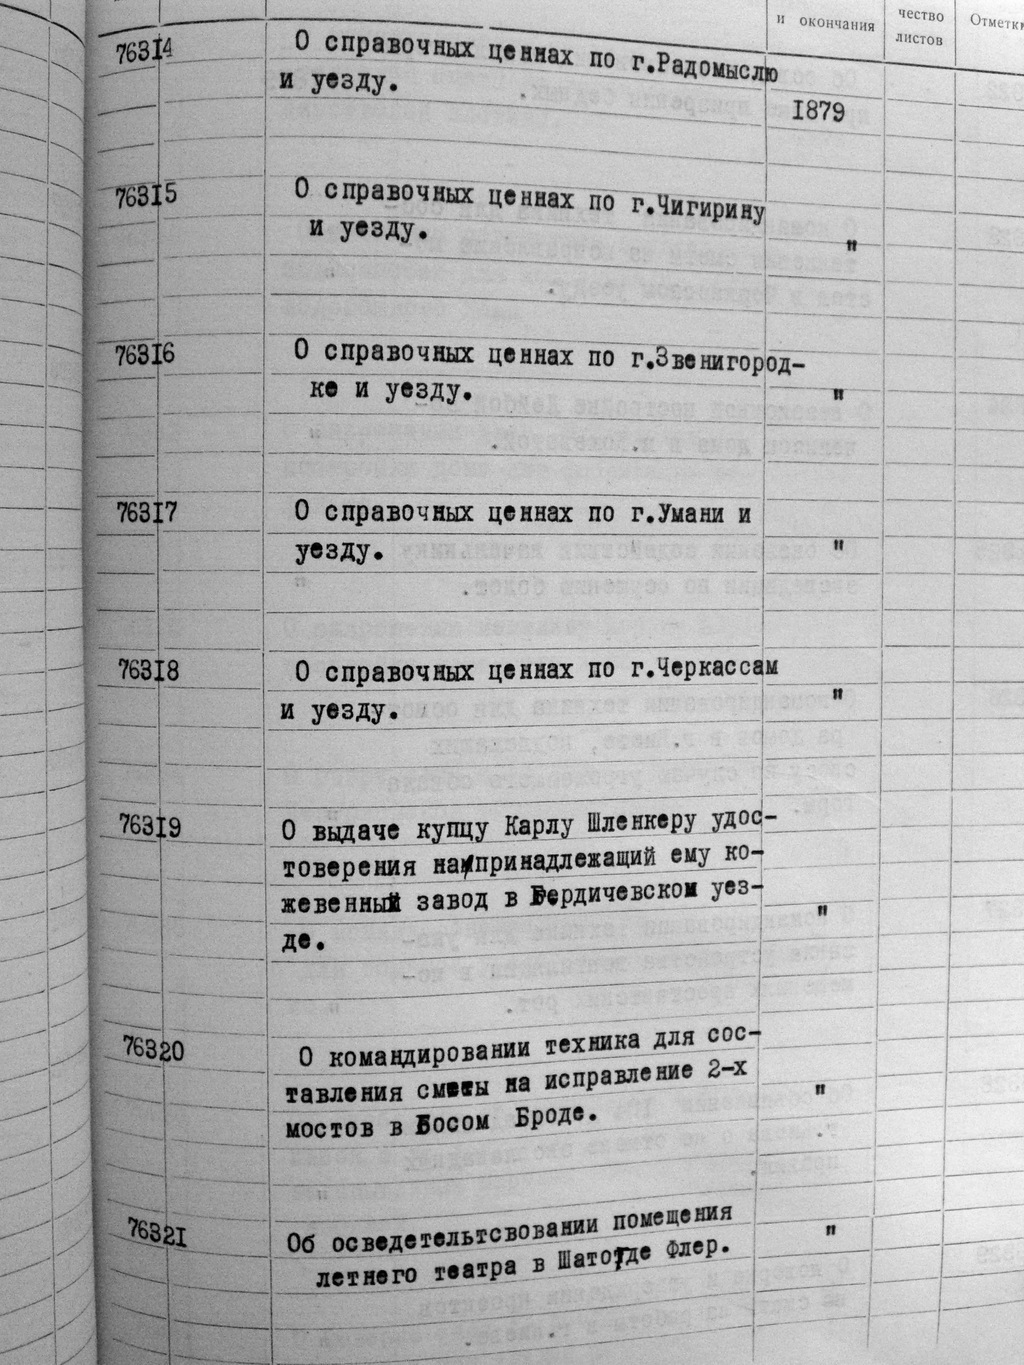 и окончания
чество
листов
Отметки
76314 О справочных ценнах по г.Радомыслю
и уезду.
1879
76315 О справочных ценнах по г.Чигирину
и уезду. "
76316 О справочных ценнах по г.Звенигород-
ке и уезду. "
76317 О справочных ценнах по г.Умани и
уезду. "
76318 О справочных ценнах по г.Черкассам
и уезду. "
76319 О выдаче купцу Карлу Шленкеру удос-
товерения на/принадлежащий ему ко-
жевенный завод в Бердичевском уез-
де. "
76320 О командировании техника для сос-
тавления сметы на исправление 2-х
мостов в Босом Броде. "
76321 Об осведетельтсвовании помещения
летнего театра в Шато де Флер. "